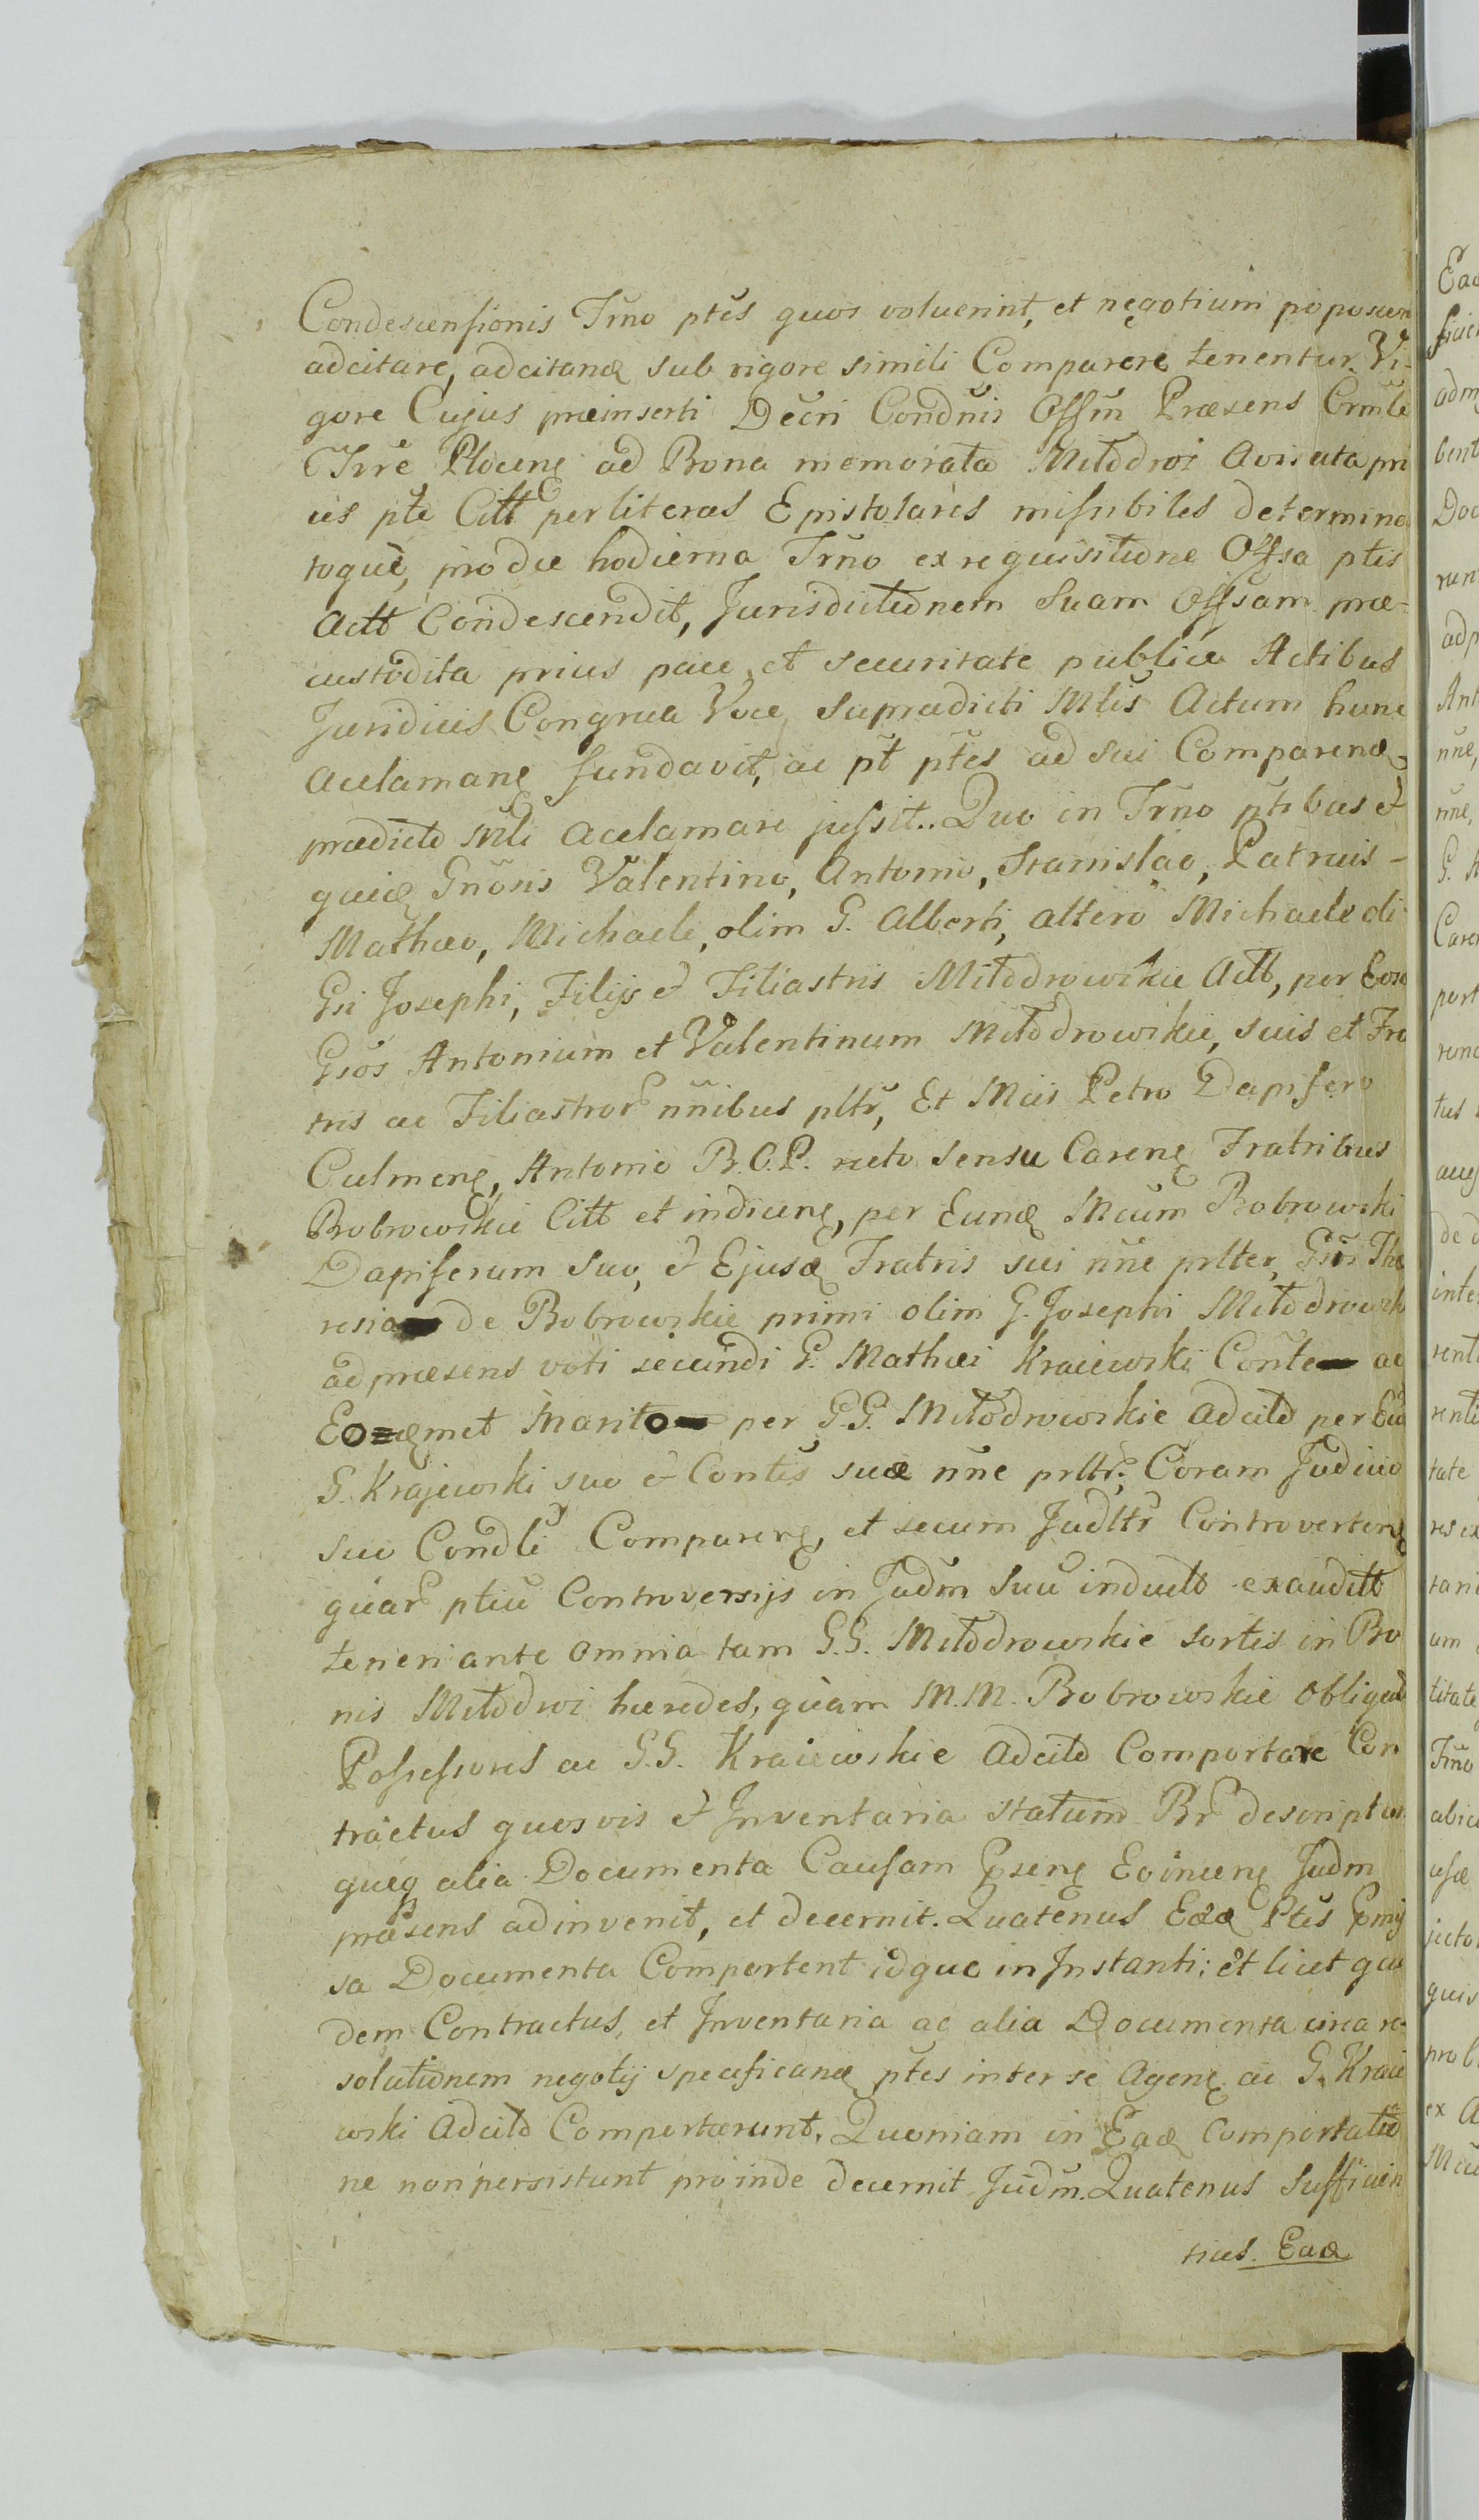 Condescensionis Trno ptes quos voluerint, et negotium poposcer
adcitare, adcitand sub rigore simili Comparere tenentur. Vi-
gore Cujus præinserti Decri Condnis Offm Præsens Crmle
Trre Plocen ad Bona memorata Miłodroz Avisata pri
us pte Citt per literas Epistolares missibiles determina
toque, pro die hodierna Trno ex requisitione Offsa ptis
Actt Condescendit, Jurisdictionem Suam Offsam præ-
custodita prius pace et securitate publica Actibus
Juridicis Congrua Voce supradicti Mlis Actum hunc
Acclamant fundavit, ac pt ptes ad sui Comparend
prædicto Mli acclamari jussit.. Quo in Trno ptibus et
quid Gnosis Valentino, Antonio, Stanislao, Patruis-
Mathæo, Michaele, olim G. Alberti, altero Michaele oli
Gsi Josephi, Filijs et Filiastris Miłodrowskie Actt, per Eosd
Gsos Antonium et Valentinum Miłodrowskie, suis et Fra
tris ac Filiastror nnibus pltr, Et Mcis Petro Dapifero
Culmen, Antonio B.O.P. recto sensu Caren Fratribus
Bobrowskie Citt et indicen, per Eund Mcum Bobrowski
Dapiferum suo, et Ejusd Fratris sui nne prlter, Gsis The
resia de Bobrowskie primi olim G. Josephi Miłodrowsk
ad præsens voti secundi G. Mathæi Kraiewski Conte ac
Eodemet Marito per G.G. Miłodrowskie Adcito per Eun
G. Krajewski suo et Contis suæ nne prltr. Coram Judicio
suo Condli Comparen, et secum Judltr Controverten
quar ptiu Controversijs in Judm Suu inducto exauditt
teneri ante omnia tam G.G. Miłodrowskie sortis in Bo
nis Miłodroi hæredes, quam M.M. Bobrowskie Obligat
Possessores ac G.G. Kraiewskie Adcito Comportare Con
tractus quosvis et Inventaria statum Br descriptus
queq alia Documenta Causam Psen Evincen Judm
præsens adinvenit, et decernit. Quatenus Eæd Ptes Pmis
sa Documenta Comportent idque in Instanti; Et licet qui
dem Contractus, et Inventaria ac alia Documenta circa re-
solutionem negotij specificand ptes inter se Agen ac G. Kraie
wski Adcito Comportarunt, Quoniam in Ead Comportatio
ne non persistunt proinde decernit Judm. Quatenus Sufficien
tius. Ead